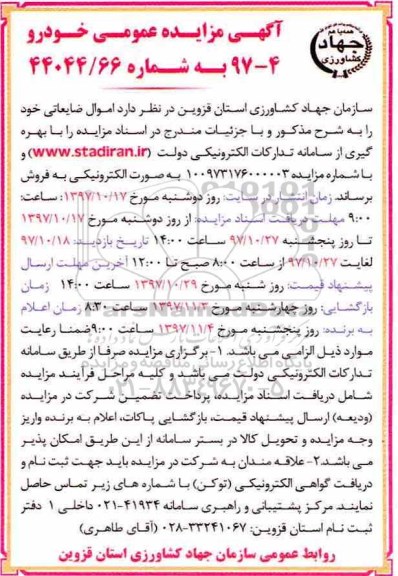 همیا با هم
جهاد
کشاورزی
آگهی مزایده عمومی خودرو
۴-۹۷ به شماره ۴۴۰۴۴/۶۶
سازمان جهاد کشاورزی استان قزوین در نظر دارد اموال ضایعاتی خود
را به شرح مذکور و با جزئیات مندرج در اسناد مزایده را با بهره
گیری از سامانه تدارکات الکترونیکی دولت (www.stadiran.ir) و
با شماره مزایده ۱۰۰۹۷۳۱۷۶۰۰۰۰۰۳ به صورت الکترونیکی به فروش
برساند. زمان انتشار در سایت: روز دوشنبه مورخ ۱۳۹۷/۱۰/۱۷: ساعت:
۹:۰۰ مهلت دریافت اسناد مزایده: از روز دوشنبه مورخ ۱۳۹۷/۱۰/۱۷
تا روز پنجشنبه ۹۷/۱۰/۲۷ ساعت ۱۴:۰۰ تاریخ بازدید: ۹۷/۱۰/۱۸
لغایت ۹۷/۱۰/۲۷ از ساعت ۸:۰۰ صبح تا ۱۲:۰۰ آخرین مهلت ارسال
پیشنهاد قیمت: روز شنبه مورخ ۱۳۹۷/۱۰/۲۹ ساعت ۱۴:۰۰ زمان
بازگشایی: روز چهارشنبه مورخ ۱۳۹۷/۱۱/۳ ساعت ۸:۳۰ زمان اعلام
به برنده: روز پنجشنبه مورخ ۱۳۹۷/۱۱/۴ ساعت ۹:۰۰ ضمنا رعایت
موارد ذیل الزامی می باشد. ۱-برگزاری مزایده صرفا از طریق سامانه
تدارکات الکترونیکی دولت می باشد و کلیه مراحل فرآیند مزایده
شامل دریافت اسناد مزایده، پرداخت تضمین شرکت در مزایده
(ودیعه) ارسال پیشنهاد قیمت، بازگشایی پاکات، اعلام به برنده واریز
وجه مزایده و تحویل کالا در بستر سامانه از این طریق امکان پذیر
می باشد ۲- علاقه مندان به شرکت در مزایده باید جهت ثبت نام و
دریافت گواهی الکترونیکی (توکن) با شماره های زیر تماس حاصل
نمایند مرکز پشتیبانی و راهبری سامانه ۴۱۹۳۴-۰۲۱ داخلی ۱ دفتر
ثبت نام استان قزوین: ۳۳۲۴۱۰۶۷-۰۲۸ (آقای طاهری)
روابط عمومی سازمان جهاد کشاورزی استان قزوین